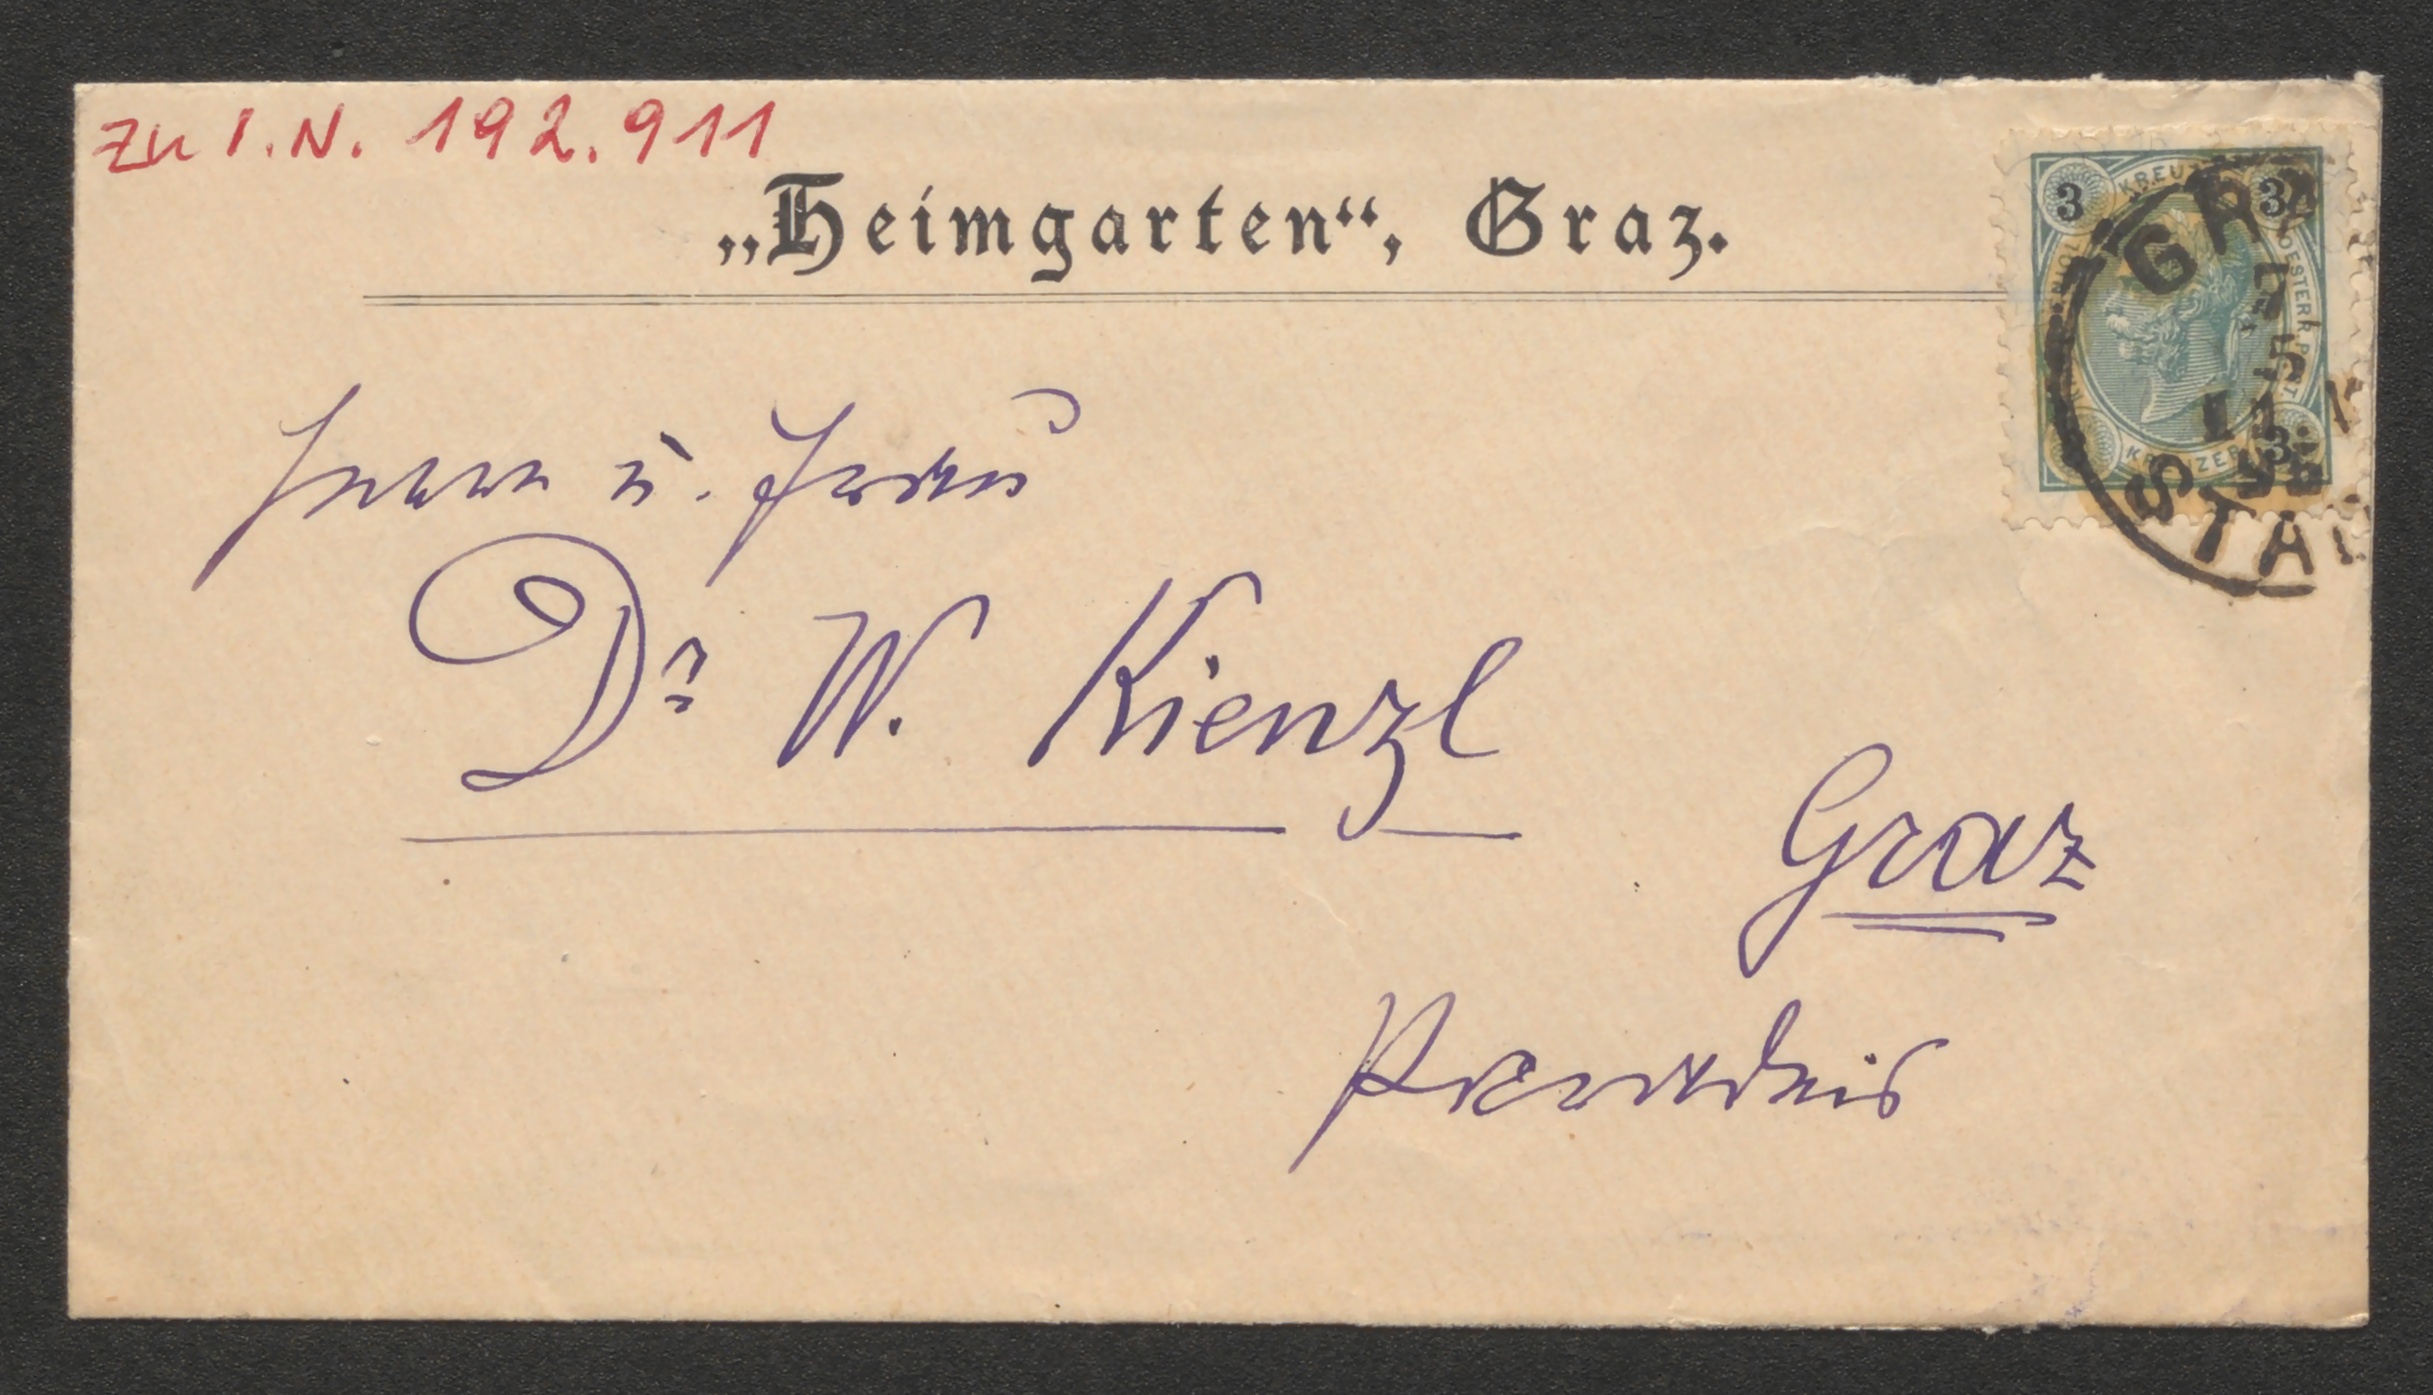 zu I.N. 192.911
„Heimgarten“, Graz.
Herrn u. Frau
Dr W. Kienzl
Graz
Paradeis
3 KREUZER 3
OESTERR. POST
KREUZER 3
GRA
5
11
STA